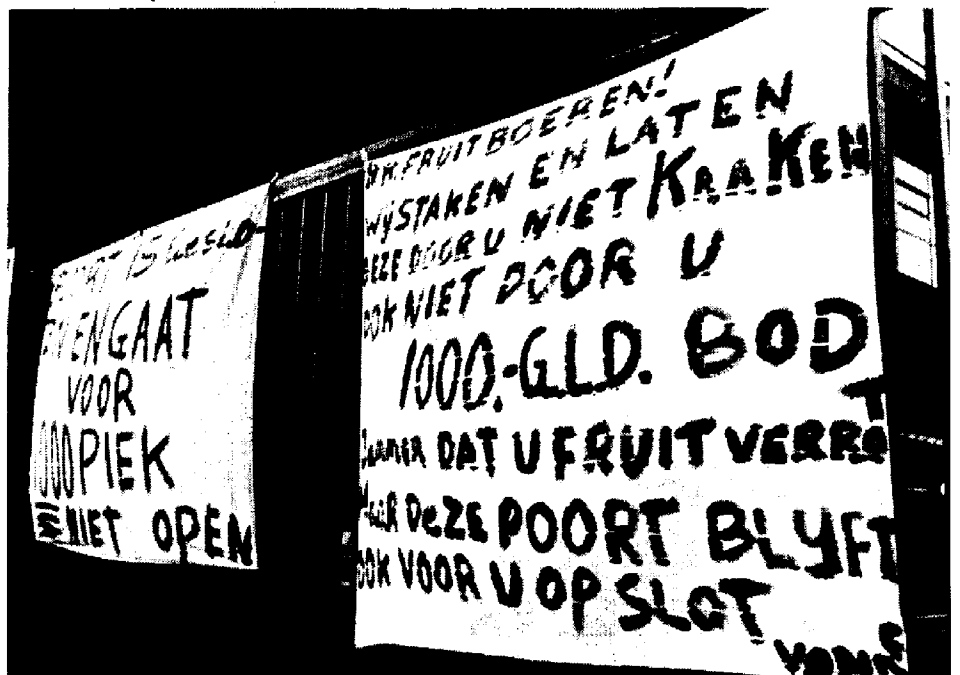 POORT IS GESLO-
EN GAAT
VOOR
1000 PIEK
NIET OPEN
FRUITBOEREN!
WIJ STAKEN EN LATEN
DEZE DOOR U NIET KRAAKEN
OOK NIET DOOR U
1000.-GLD. BOD
JAMMER DAT U FRUIT VERROT
MAAR DEZE POORT BLYFT
OOK VOOR U OP SLOT